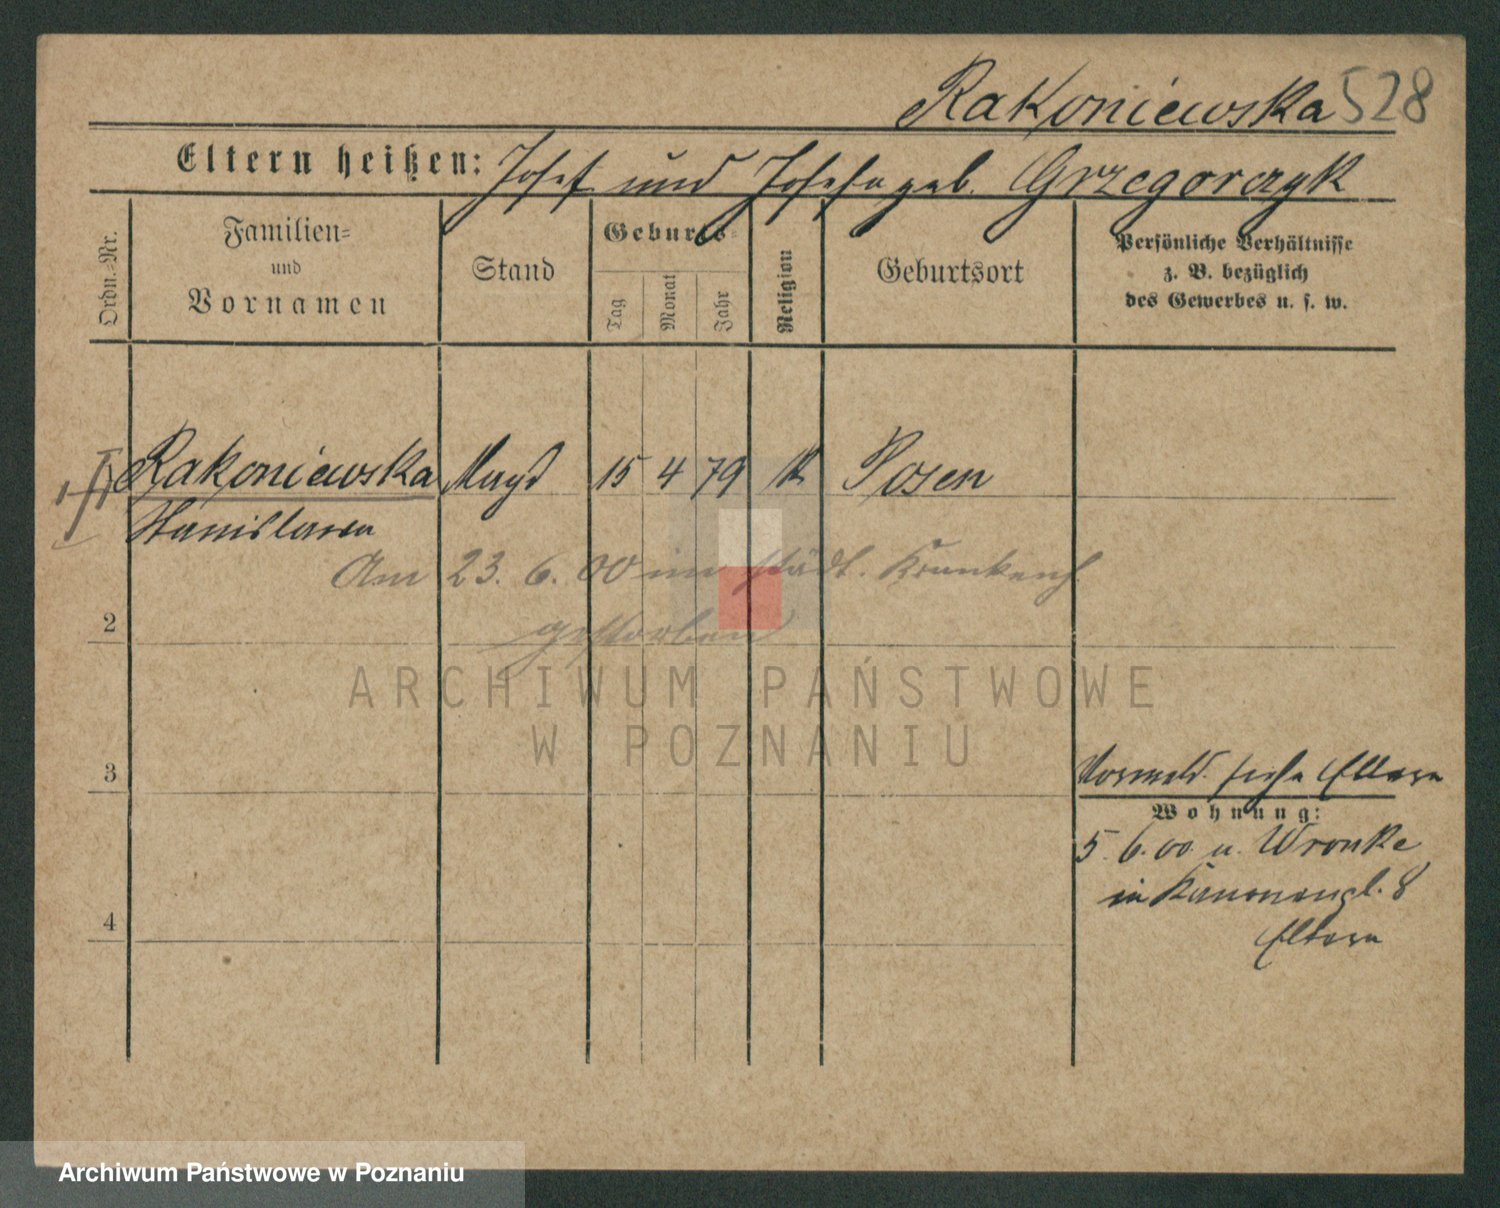 Rakoniewska 528
Eltern heißen: Josef und Josefa geb. Grzegorczyk
Ordn.-Nr.
Familien-
und
Vornamen
Stand
Geburts-
Tag
Monat
Jahr
Religion
Geburtsort
Persönliche Verhältnisse
z. B. bezüglich
des Gewerbes u. s. w.
Rakoniewska Magd 15 4 79 K Posen
Stanislawa
Am 23. 6. 00 im städt. Krankenh.
gestorben
2
3
4
ARCHIWUM PAŃSTWOWE
W POZNANIU
siehe Eltern
Wohnung:
5. 6. 00 n. Wronke
in Kanonenpl. 8
Eltern
Archiwum Państwowe w Poznaniu